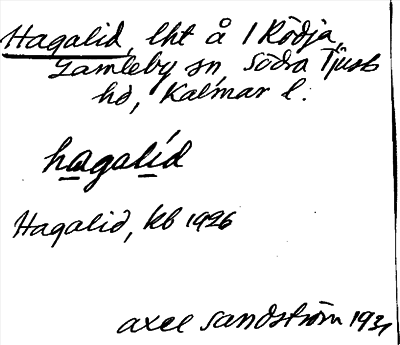 Hagalid, lht å 1 Rödja,
Gamleby sn, Södra Tjust
hd, Kalmar l.
hagalíd
Hagalid, kb 1926
Axel Sandström 1931